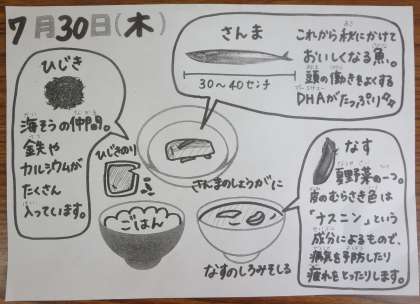 7月30日(木)
ひじき
海そうの仲間。
鉄や
カルシウムが
たくさん
入っています。
さんま
30〜40センチ
これから秋にかけて
おいしくなる魚。
頭の働きをよくする
DHAがたっぷり
ひじきのり
さんまのしょうがに
ごはん
なすのしろみそしる
なす
夏野菜の一つ。
皮のむらさき色は
「ナスニン」という
成分によるもので、
病気を予防したり
疲れをとったりします。